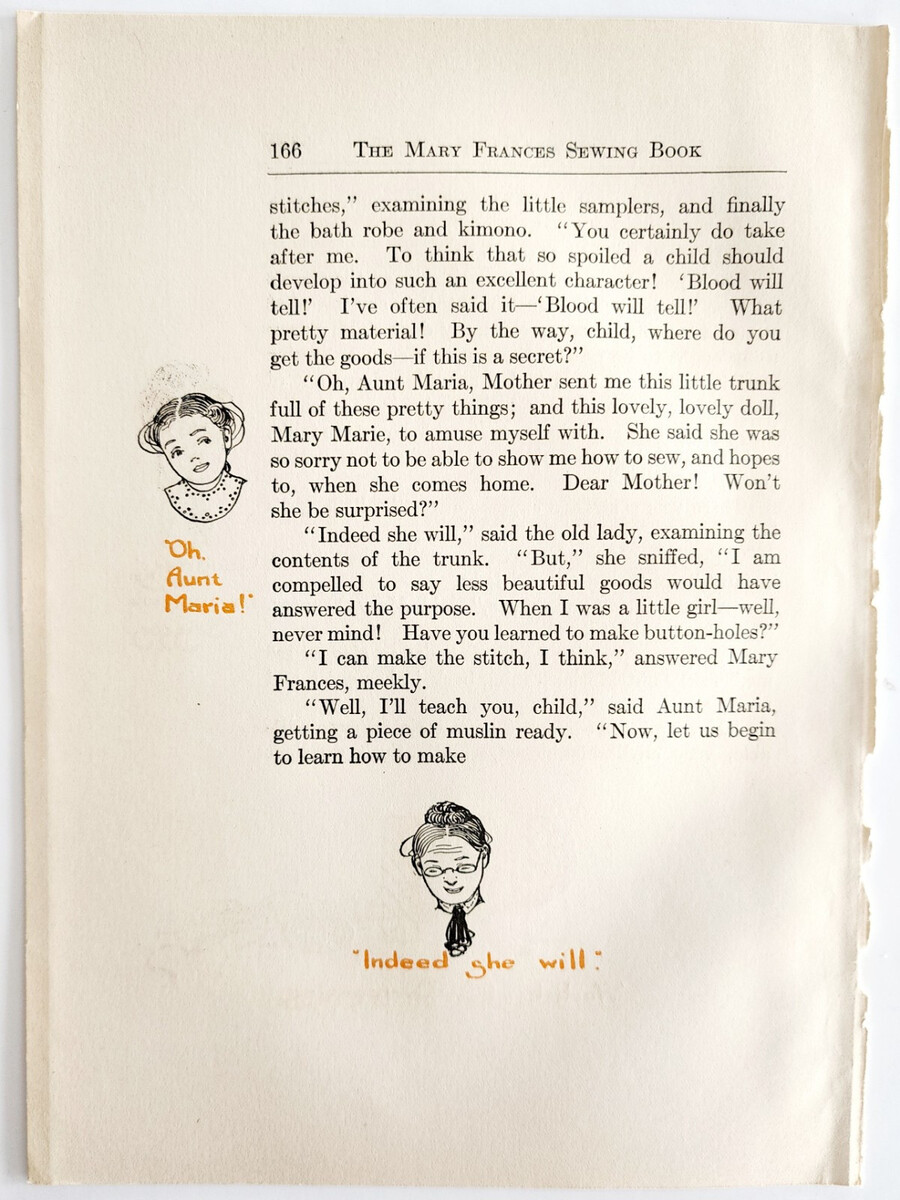 166 THE MARY FRANCES SEWING BOOK
stitches,” examining the little samplers, and finally
the bath robe and kimono. “You certainly do take
after me. To think that so spoiled a child should
develop into such an excellent character! ‘Blood will
tell!’ I’ve often said it—‘Blood will tell!’ What
pretty material! By the way, child, where do you
get the goods—if this is a secret?”
“Oh, Aunt Maria, Mother sent me this little trunk
full of these pretty things; and this lovely, lovely doll,
Mary Marie, to amuse myself with. She said she was
so sorry not to be able to show me how to sew, and hopes
to, when she comes home. Dear Mother! Won’t
she be surprised?”
“Indeed she will,” said the old lady, examining the
contents of the trunk. “But,” she sniffed, “I am
compelled to say less beautiful goods would have
answered the purpose. When I was a little girl—well,
never mind! Have you learned to make button-holes?”
“I can make the stitch, I think,” answered Mary
Frances, meekly.
“Well, I’ll teach you, child,” said Aunt Maria,
getting a piece of muslin ready. “Now, let us begin
to learn how to make
"Oh,
Aunt
Maria!"
"Indeed she will."